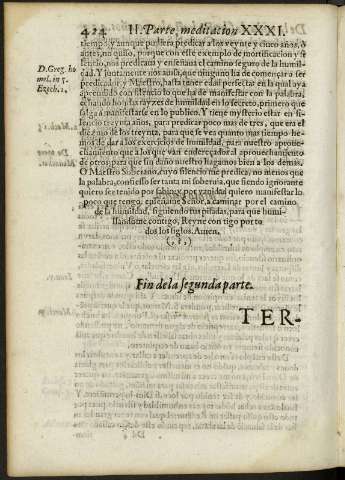 424 II. Parte, meditacion XXXI.
tiempo, y aunque pudiera predicar a los veynte y cinco años, ó
antes, no quiso, porque con este exemplo de mortificacion y si
D. Greg. ho
lencio, nos predicara y enseñara el camino seguro de la humil-
mel. in 3.
dad. Y juntamente nos auisa, que ninguno ha de començar a ser
Ezech. 2.
predicador, y Maestro, hasta tener edad perfecta en la qual aya
aprendido con el silencio lo que ha de manifestar con la palabra,
echando hondas rayzes de humildad en lo secreto, primero que
salga a manifestarse en lo publico. Y tiene mysterio estar en si-
lencio treynta años, para predicar poco mas de tres, que era el
diezmo de los treynta, para que se vea quanto mas tiempo he-
mos de dar a los exercicios de humildad, para nuestro aproue-
chamiento que a los que van endereçados al aprouechamiento
de otros para que sin daño nuestro hagamos bien a los demas.
O Maestro Soberano, cuyo silencio me predica, no menos que
la palabra, confiesso ser tanta mi soberuia, que siendo ignorante
quiero ser tenido por sabio; y por vanidad quiero manifestar lo
poco que tengo, enseñame Señor, a caminar por el camino
de la humildad, siguiendo tus pisadas, para que humi-
llandome contigo, Reyne con tigo por to
dos los siglos. Amen.
(.?.)
Fin de la segunda parte.
TER-